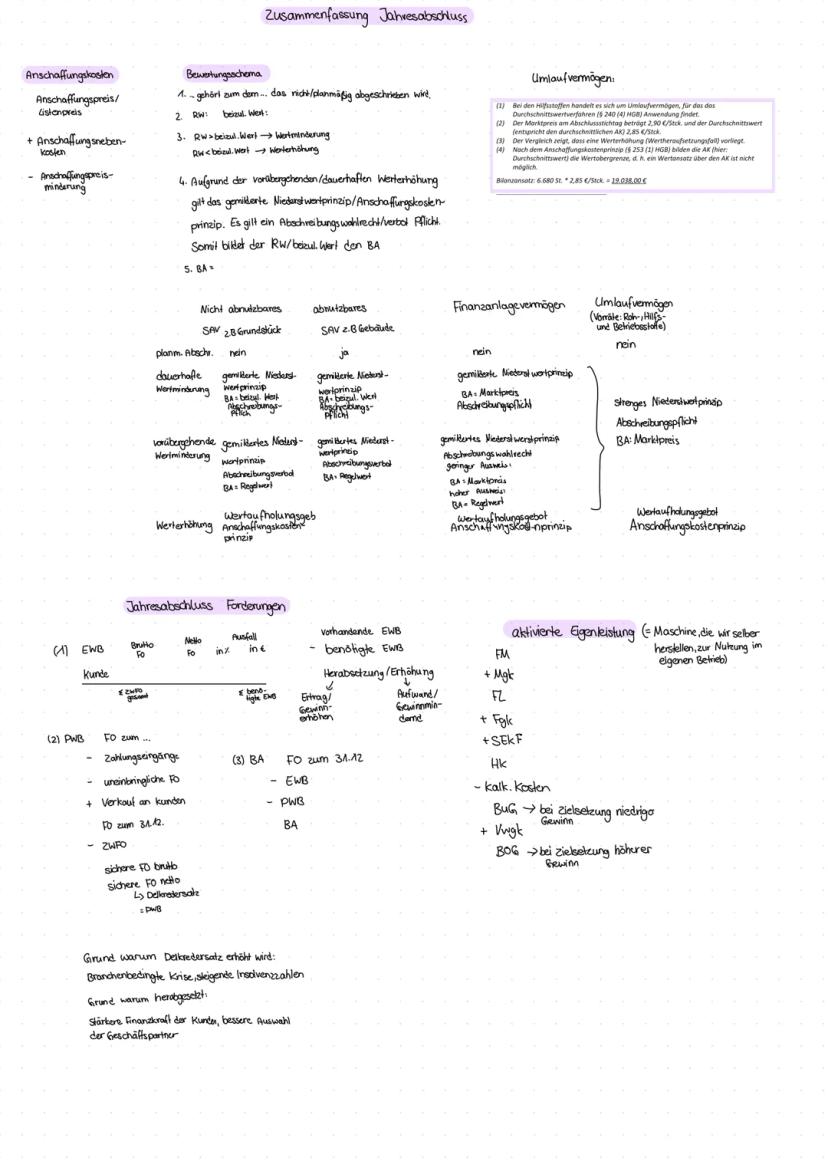 Zusammenfassung Jahresabschluss
Anschaffungskosten
Anschaffungspreis/
Listenpreis
+ Anschaffungsneben-
kosten
- Anschaffungspreis-
minderung
Bewertungsschema
1. ... gehört zum dem... das nicht/planmäßig abgeschrieben wird.
2. RW: beizul. Wert:
3. RW > beizul. Wert → Wertminderung
RW < beizul. Wert → Werterhöhung
4. Aufgrund der vorübergehenden/dauerhaften Werterhöhung
gilt das gemilderte Niederstwertprinzip/Anschaffungskosten-
prinzip. Es gilt ein Abschreibungswahlrecht/verbot Pflicht.
Somit bildet der RW/beizul. Wert den BA
5. BA =
Umlaufvermögen:
(1) Bei den Hilfsstoffen handelt es sich um Umlaufvermögen, für das das
Durchschnittswertverfahren (§ 240 (4) HGB) Anwendung findet.
(2) Der Marktpreis am Abschlussstichtag beträgt 2,90 €/Stck. und der Durchschnittswert
(entspricht den durchschnittlichen AK) 2,85 €/Stck.
(3) Der Vergleich zeigt, dass eine Werterhöhung (Wertheraufsetzungsfall) vorliegt.
(4) Nach dem Anschaffungskostenprinzip (§ 253 (1) HGB) bilden die AK (hier:
Durchschnittswert) die Wertobergrenze, d. h. ein Wertansatz über den AK ist nicht
möglich.
Bilanzansatz: 6.680 St. * 2,85 €/Stck. = 19.038,00 €
Nicht abnutzbares
SAV z.B Grundstück
abnutzbares
SAV z.B Gebäude
Finanzanlagevermögen
Umlaufvermögen
(Vorräte: Roh-, Hilfs-
und Betriebsstoffe)
planm. Abschr. nein ja nein nein
dauerhafte
Wertminderung
gemilderte Niederst-
wertprinzip
BA = beizul. Wert
Abschreibungs-
Pflich
gemilderte Niederst-
wertprinzip
BA = beizul. Wert
Abschreibungs-
Pflicht
gemilderte Niederstwertprinzip
BA = Marktpreis
Abschreibungspflicht
strenges Niederstwertprinzip
Abschreibungspflicht
BA: Marktpreis
vorübergehende
Wertminderung
gemildertes Niederst-
wertprinzip
Abschreibungsverbot
BA = Regelwert
gemildertes Niederst-
wertprinzip
Abschreibungsverbot
BA = Regelwert
gemildertes Niederstwerstprinzip
Abschreibungswahlrecht
geringer Ausweis:
BA = Marktpreis
hoher Ausweis:
BA = Regelwert
Werterhöhung
Wertaufholungsgeb
Anschaffungskosten
prinzip
Wertaufholungsgebot
Anschaffungskostenprinzip
Wertaufholungsgebot
Anschaffungskostenprinzip
Jahresabschluss Forderungen
(1) EWB Brutto FO Netto FO Ausfall in % in €
Kunde
Σ ZWFO gesamt Σ benö-
tigte EWB
vorhandende EWB
- benötigte EWB
Herabsetzung/Erhöhung
Ertrag/
Gewinn-
erhöhen
Aufwand/
Gewinnmin-
dernd
(2) PWB FO zum ...
- Zahlungseingänge
- uneinbringliche FO
+ Verkauf an Kunden
FO zum 31.12.
- ZWFO
sichere FO brutto
sichere FO netto
↳ Delkredersatz
= PWB
(3) BA FO zum 31.12
- EWB
- PWB
BA
aktivierte Eigenleistung (= Maschine, die wir selber
herstellen, zur Nutzung im
eigenen Betrieb)
FM
+ Mgk
FL
+ Fgk
+ SEKF
HK
- kalk. Kosten
BUG → bei Zielsetzung niedrige
Gewinn
+ Vwgk
BOG → bei Zielsetzung höherer
Gewinn
Grund warum Delkredersatz erhöht wird:
Branchenbedingte Krise, steigende Insolvenzzahlen
Grund warum herabgesetzt:
Stärkere Finanzkraft der Kunden, bessere Auswahl
der Geschäftspartner